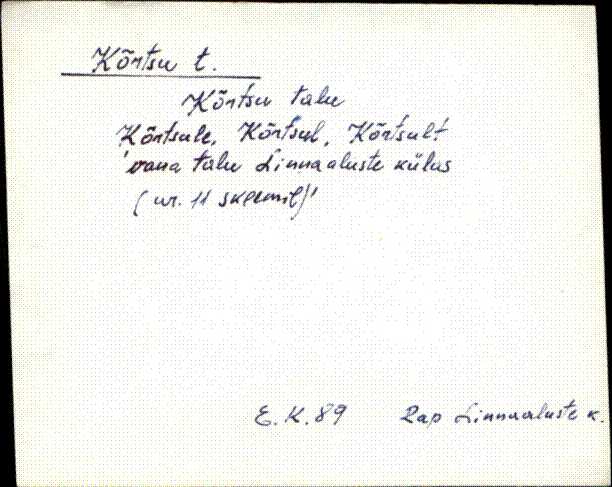 Kõrtsu t.
Kõrtsu talu
Kõrtsule, Kõrtsul, Kõrtsult
'vana talu Linnaaluste külas
(nr. 11 skeemil)'
E.K.89 Rap Linnaaluste k.